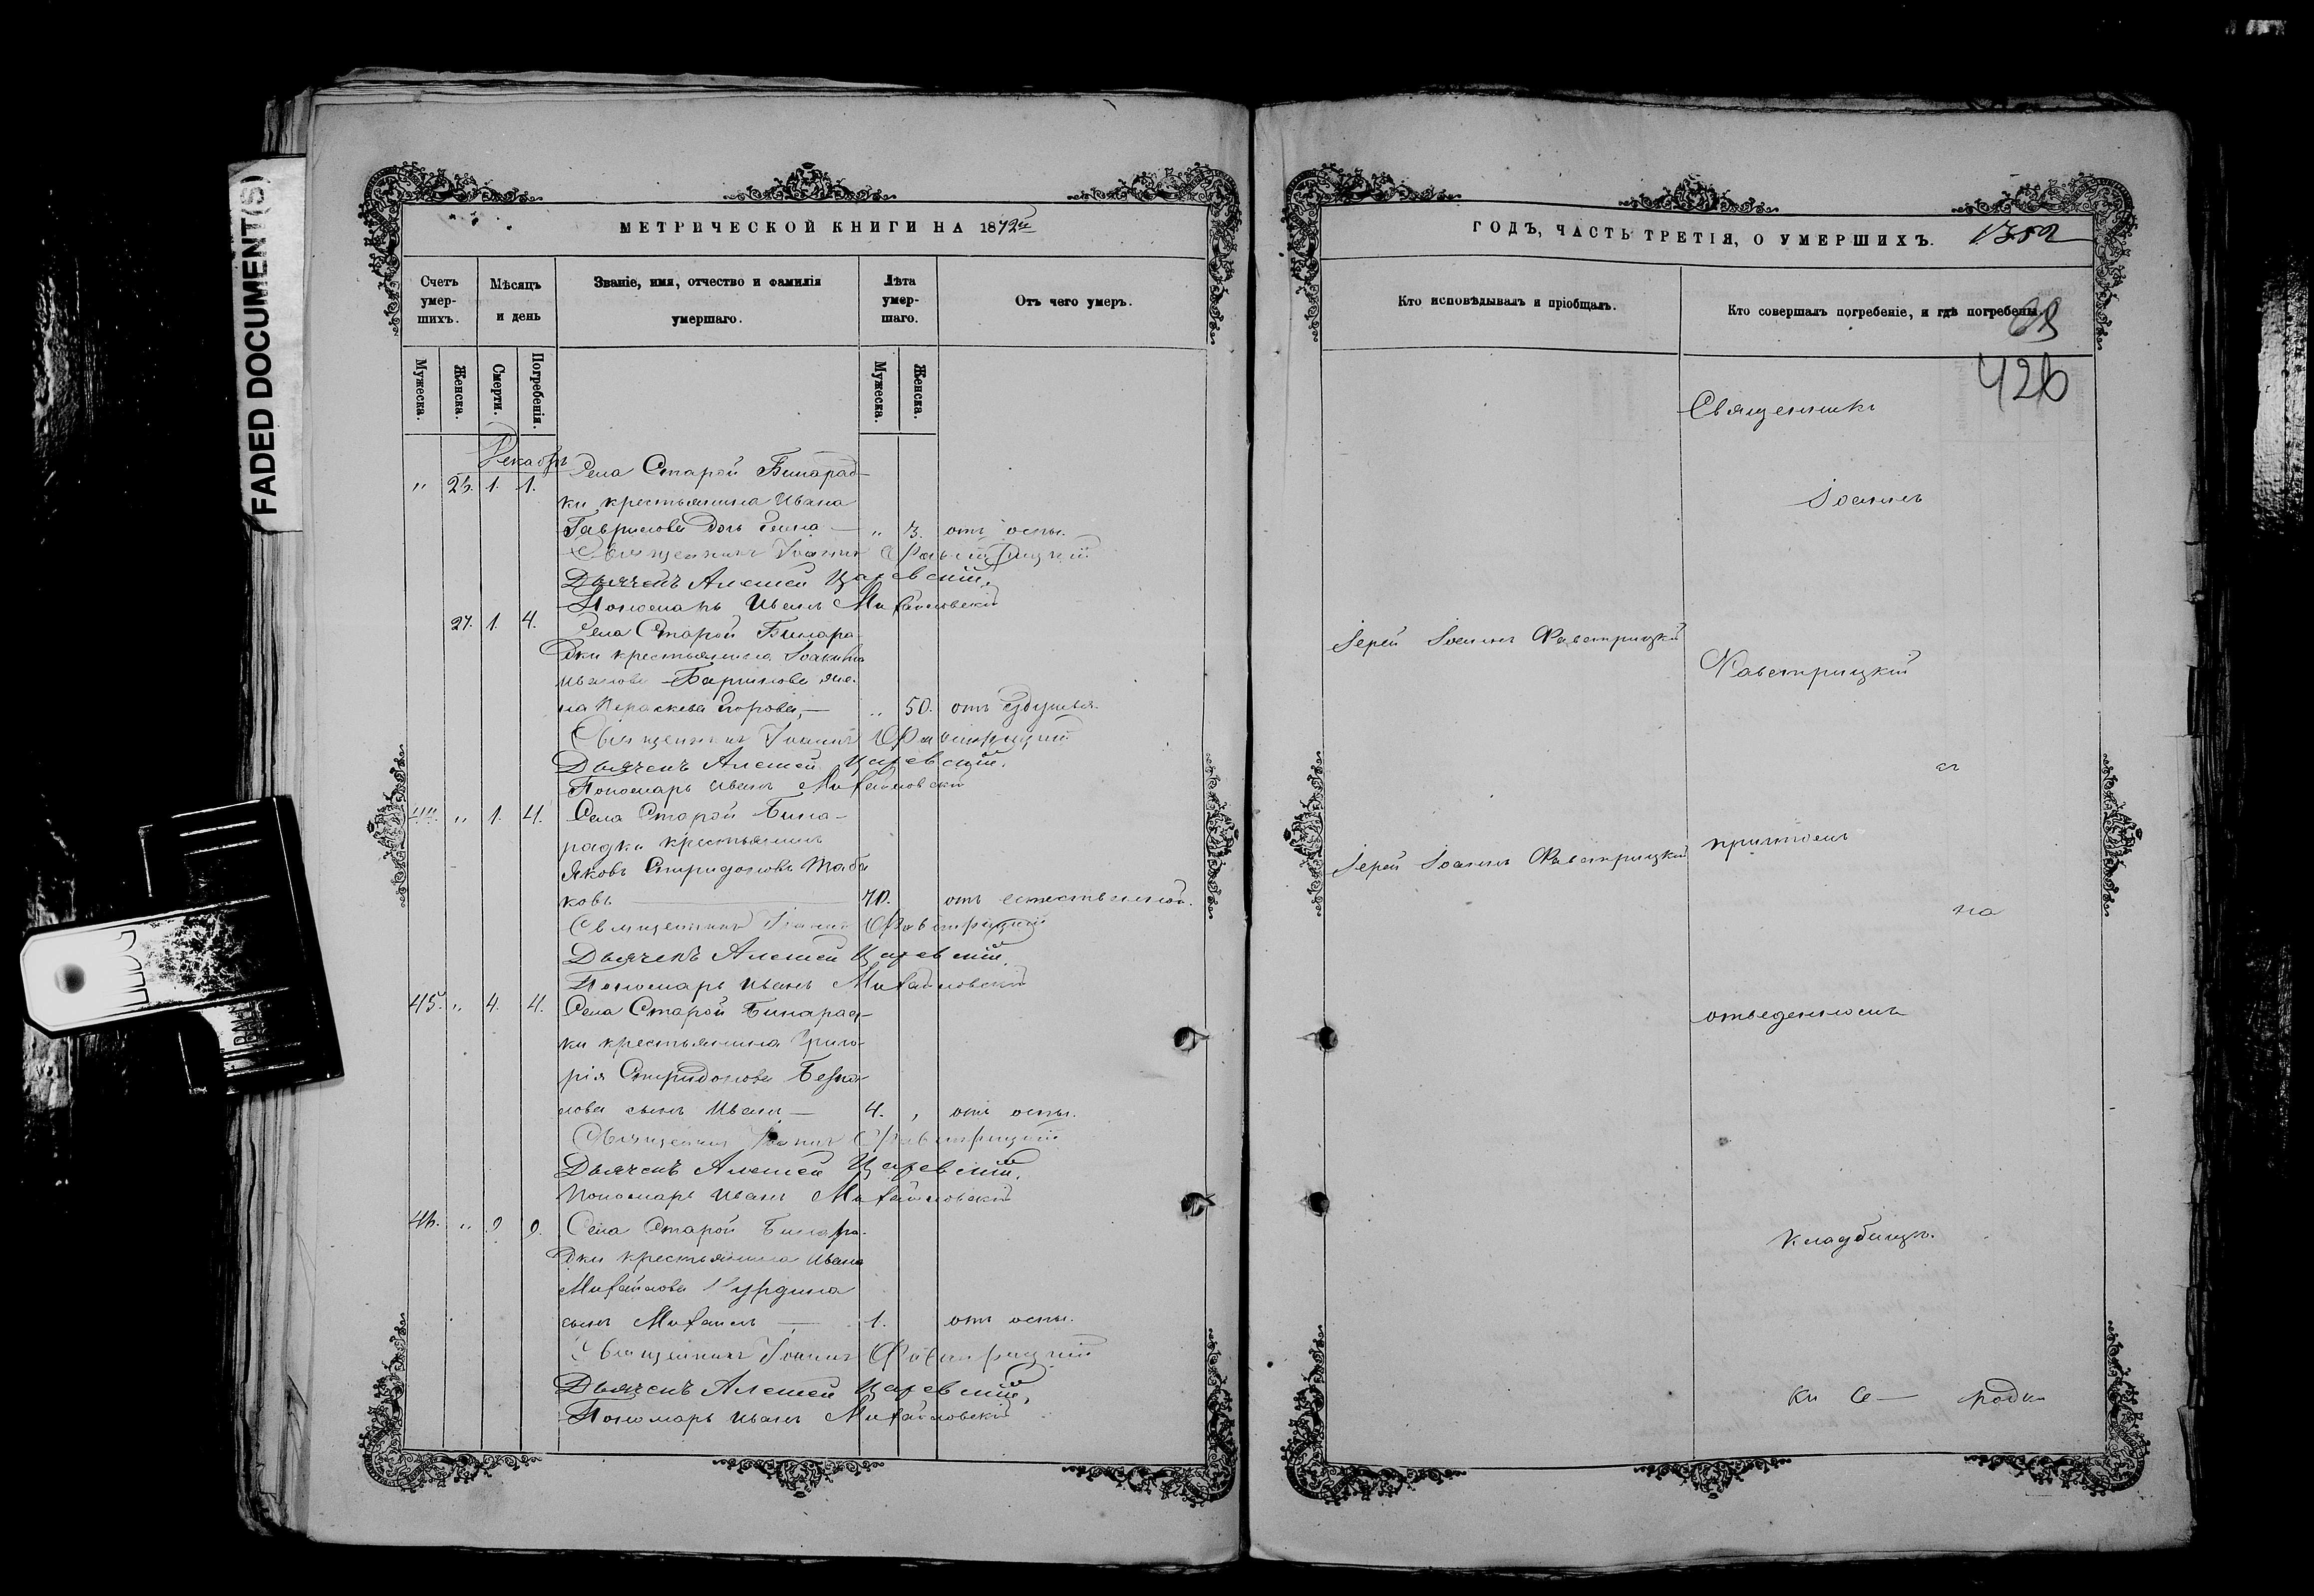 FADED DOCUMENT(S)
МЕТРИЧЕСКОЙ КНИГИ НА 1872й
Счетъ умер-шихъ.
Мѣсяцъ и день
Званіе, имя, отчество и фамилія умершаго.
Лѣта умер-шаго.
Отъ чего умеръ.
Мужеска.
Женска.
Смерти.
Погребенія.
Мужеска.
Женска.
Декабрь
" 26. 1. 1. Села Старой Бинарад-
ки крестьянина Ивана
Гаврилова дочь — " 3. отъ оспы.
Священникъ Іоаннъ Фавстрицкій
Дьячекъ Алексей Царевскій.
Пономарь Иванъ Михайловскій
27. 1. 4. Села Старой Бинара-
дки крестьянина Іоакима
Иванова Баринова же-
на Параскева — " 50. отъ удушья.
Священникъ Іоаннъ Фавстрицкій
Дьячекъ Алексей Царевскій.
Пономарь Иванъ Михайловскій
44. " 1. 4. Села Старой Бина-
радки крестьянинъ
Яковъ Спиридоновъ Таба
ковъ — 70. отъ естественной.
Священникъ Іоаннъ Фавстрицкій
Дьячекъ Алексей Царевскій.
Пономарь Иванъ Михайловскій
45. " 4. 4. Села Старой Бинарад-
ки крестьянина Григо-
рія Спиридонова
сынъ Иванъ — 4. " отъ оспы.
Священникъ Іоаннъ Фавстрицкій
Дьячекъ Алексей Царевскій.
Пономарь Иванъ Михайловскій
46. " 9 9. Села Старой Бинара-
дки крестьянина Ивана
Михайлова Курдина
сынъ Михаилъ — 1. отъ оспы.
Священникъ Іоаннъ Фавстрицкій
Дьячекъ Алексей Царевскій.
Пономарь Иванъ Михайловскій
ГОДЪ, ЧАСТЬ ТРЕТІЯ, О УМЕРШИХЪ.
Кто исповѣдывалъ и пріобщалъ.
Кто совершалъ погребеніе, и гдѣ погребены.
426
Священникъ
Іоаннъ
Іерей Іоаннъ Фавстрицкій
Фавстрицкій
съ
Іерей Іоаннъ Фавстрицкій
причтомъ
на
отведенномъ
кладбищѣ.